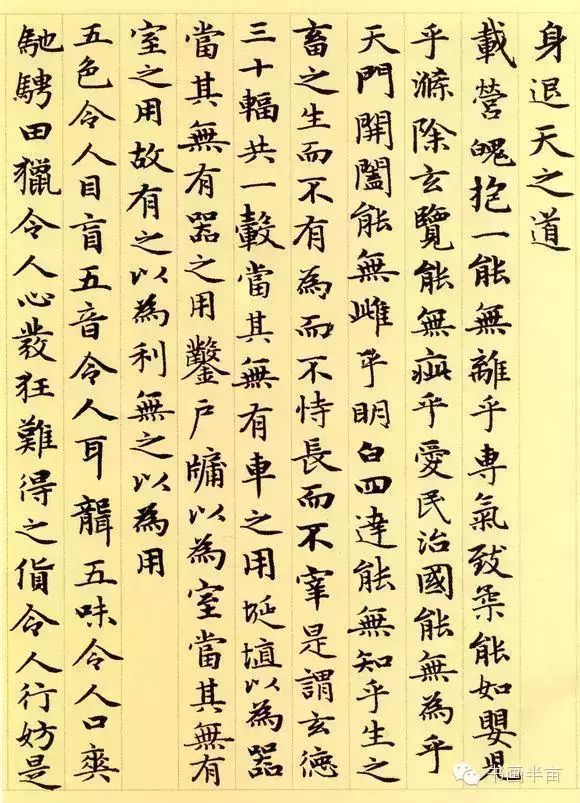 身退天之道
載營魄抱一能無離乎專氣致柔能如嬰兒
乎滌除玄覽能無疵乎愛民治國能無為乎
天門開闔能無雌乎明白四達能無知乎生之
畜之生而不有為而不恃長而不宰是謂玄德
三十輻共一轂當其無有車之用埏埴以為器
當其無有器之用鑿戶牖以為室當其無有
室之用故有之以為利無之以為用
五色令人目盲五音令人耳聾五味令人口爽
馳騁田獵令人心發狂難得之貨令人行妨是
书画半亩